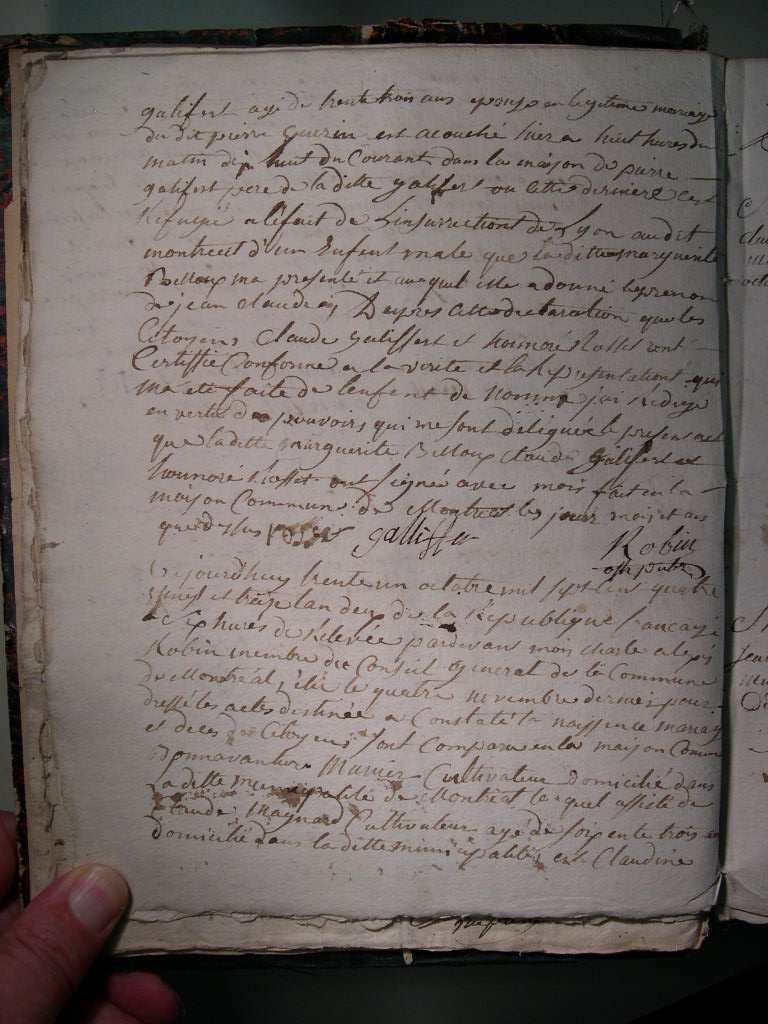 galifert agé de trente trois ans epouse en legitime mariage
du dit pierre Guerin est acouché hier a huit hures du
matin dix huit du Courant dans la maison de pierre
galifert pere de la ditte galifert ou cette derniere est
Refugié a lefait de Linsurrection de Lyon audit
montreal d'un Enfent male que la ditte marguerite
Belloux ma presenté et auquel elle a donné le prenon
de jean claude, Deapres cette declaration que les
Citoyens Claude galiffert et honnoré Rosset ont
Certiffié Conforme a la verité et la Representationt qui
ma été faite de lenfent de nommé jai redigé
en vertu des pouvoirs qui me sont déligués le present act
que la ditte marguerite Belloux Claude galifert et
honnoré Rosset ont signée avec mois fait en la
maison Commune de Montreal les jour mois et ans
que dessus Rosset galliffet Robin
off public
Aujourdhuy trente un octobre mil sept cens quatre
vingt et treize lan deux de la Republique francayse
a Six hures de Relevée pardevans mois charle alexis
Robin membre du Conseil general de la Commune
de Montréal, élu le quatre novembre dernier pour
dressé les actes destinée a Constaté la naissence mariag
et deces des Citoyens sont Comparu en la maison Comm
Bonnavanture Munier Cultivateur domicilié dans
la ditte municipalité de Montreal le quel assisté de
Claude Maynard Cultivateur agé de soixente trois
domicilié dans la ditte municipalité, est Claudine